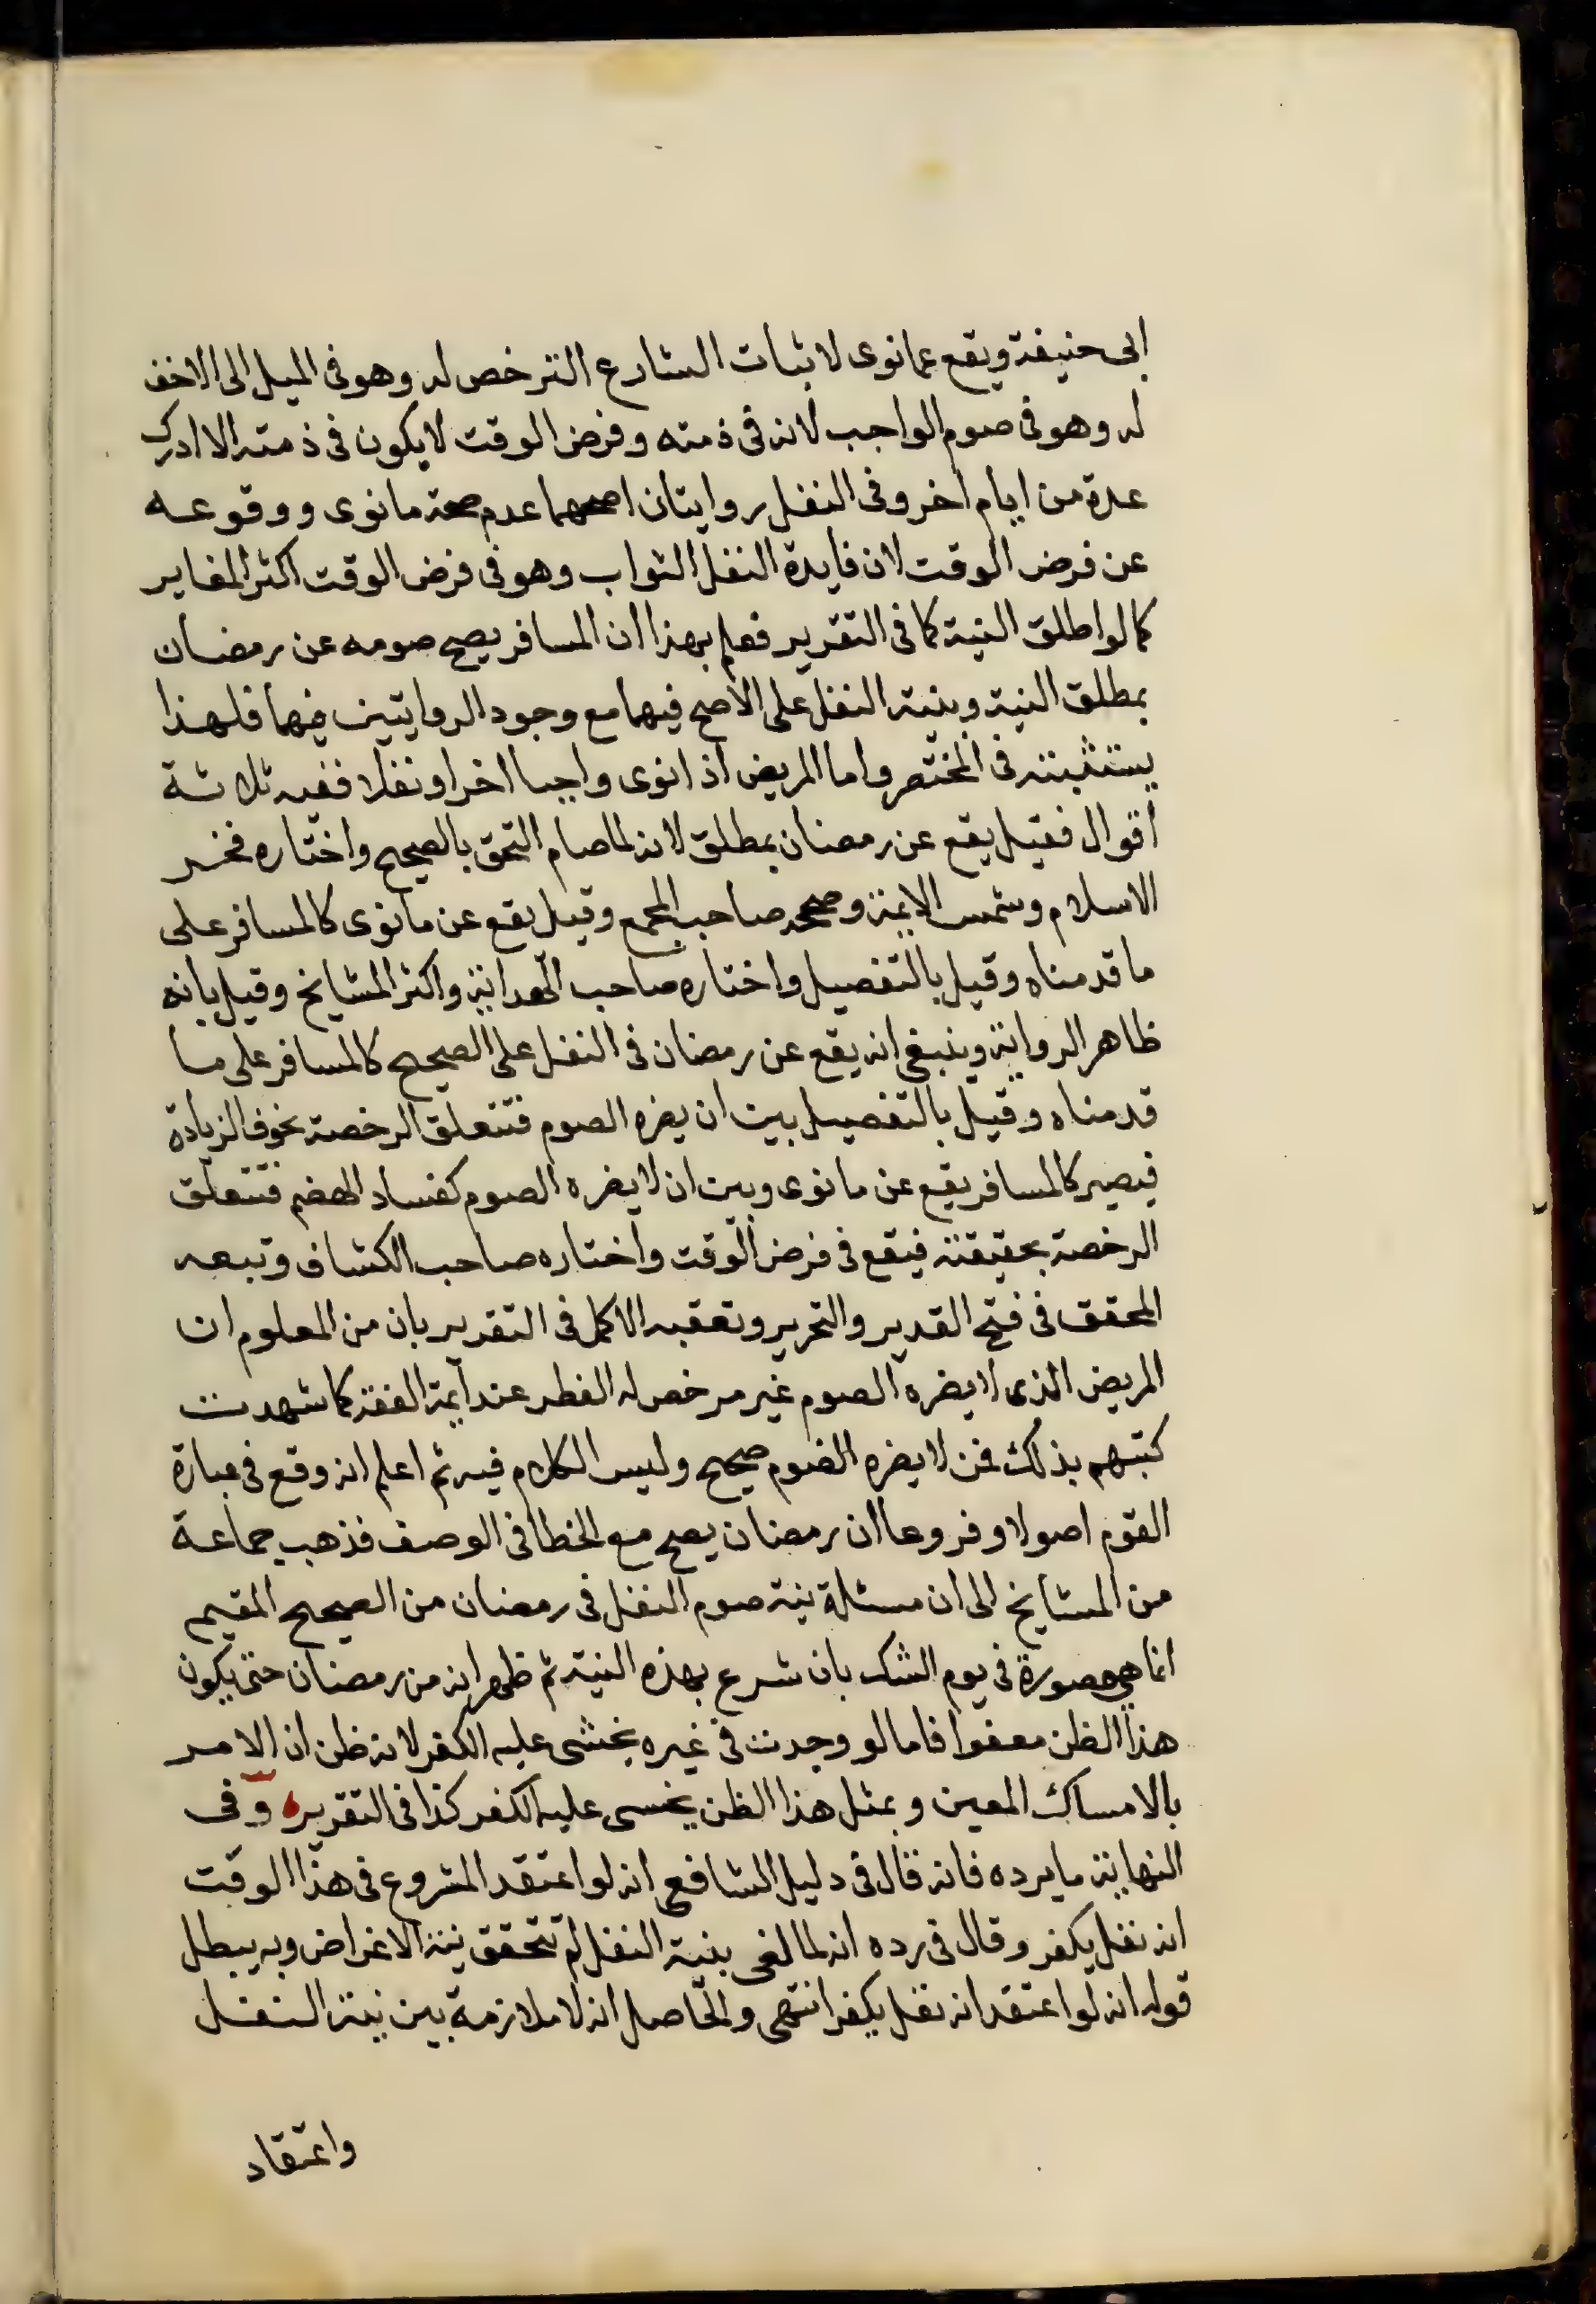 ابى حنيفة ويقع عما نوى لاثبات الشارع الترخص له وهو فى الميل الى الاخف
له وهو فى صوم الواجب لانه فى ذمته وفرض الوقت لا يكون فى ذمته الا ادرك
عدة من ايام اخر وفى النفل روايتان اصحهما عدم صحة ما نوى ووقوعه
عن فرض الوقت لان فايدة النفل الثواب وهو فى فرض الوقت اكثر المغاير
كما لو اطلق النية كما فى التقرير فعلم بهذا ان المسافر يصح صومه عن رمضان
بمطلق النية وبنية النفل على الاصح فيهما مع وجود الروايتين فيهما فلهذا
يستثنيته فى المختصر واما المريض اذا نوى واجبا اخر او نفلا ففيه ثلاثة
اقوال فقيل يقع عن رمضان بمطلق لانه لما صام التحق بالصحيح واختاره فخر
الاسلام وشمس الايمة وصححه صاحب المجمع وقيل يقع عن ما نوى كالمسافر على
ما قدمناه وقيل بالتفصيل واختاره صاحب الهداية واكثر المشايخ وقيل بانه
ظاهر الرواية وينبغى انه يقع عن رمضان فى النفل على الصحيح كالمسافر على ما
قدمناه وقيل بالتفصيل بين ان يضره الصوم فتتعلق الرخصة بخوف الزيادة
فيصير كالمسافر يقع عن ما نوى وبين ان لا يضره الصوم كفساد الهضم فتتعلق
الرخصة بحقيقته فيقع فى فرض الوقت واختاره صاحب الكشاف وتبعه
المحقق فى فتح القدير والتحرير وتعقبه الاكمل فى التقرير بان من المعلوم ان
المريض الذى لا يضره الصوم غير مرخص له الفطر عند ايمة الفقه كما شهدت
كتبهم بذلك فمن لا يضره الصوم صحيح وليس الكلام فيه ثم اعلم انه وقع فى عبارة
القوم اصولا وفروعا ان رمضان يصح مع الخطا فى الوصف فذهب جماعة
من المشايخ الى ان مسئلة نية صوم النفل فى رمضان من الصحيح المقيم
انما هى مصورة فى يوم الشك بان شرع بهذه النية ثم ظهر انه من رمضان حتى يكون
هذا الظن معفوا فاما لو وجدت فى غيره يخشى عليه الكفر لانه ظن ان الامر
بالامساك المعين وبمثل هذا الظن يخسى عليه الكفر كذا فى التقرير وفى
النهاية ما يرده فانه قال فى دليل الشافعى انه لو اعتقد المشروع فى هذا الوقت
انه نفل يكفر وقال فى رده انه لما لغى بنية النفل لم تتحقق نية الاغراض وبه يبطل
قوله انه لو اعتقد انه نفل يكفر انتهى والحاصل انه لا ملازمة بين نية النفل
واعتقاد